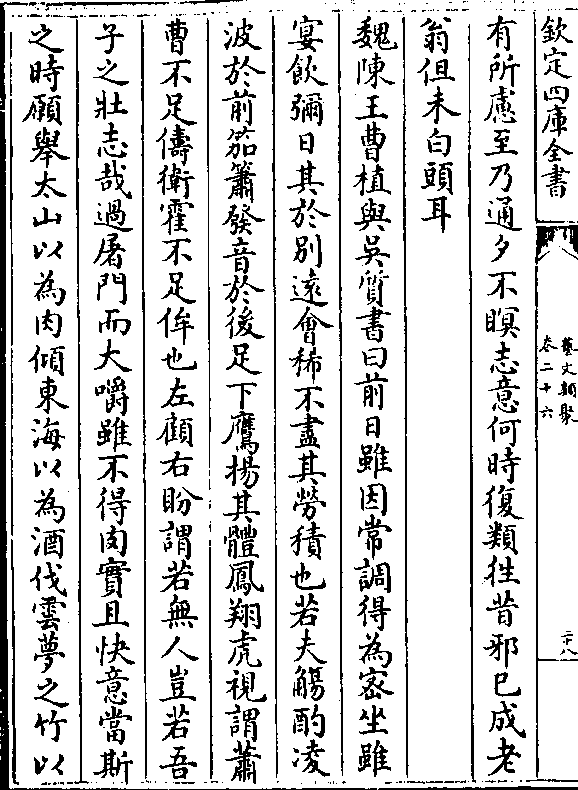 欽定四庫全書
藝文類聚
卷二十六
二十八
有所慮至乃通夕不瞑志意何時復類徃昔邪已成老
翁但未白頭耳
魏陳王曹植與吳質書曰前日雖因常調得為宻坐雖
宴飲彌日其於別遠會稀不盡其勞積也若夫觴酌凌
波於前笳簫發音於後足下鷹揚其體鳳翔虎視謂蕭
曹不足儔衛霍不足侔也左顧右盼謂若無人豈若吾
子之壯志哉過屠門而大嚼雖不得肉實且快意當斯
之時願舉太山以為肉傾東海以為酒伐雲夢之竹以